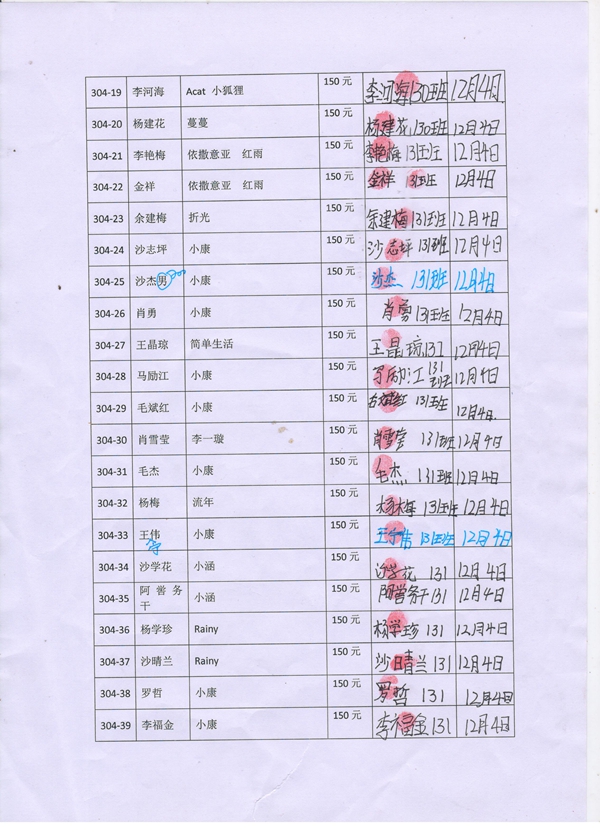 304-19 李河海 Acat 小狐狸 150 元 李河海 130班 12月4日
304-20 杨建花 蔓蔓 150 元 杨建花 130班 12月4日
304-21 李艳梅 依撒意亚 红雨 150 元 李艳梅 131班 12月4日
304-22 金祥 依撒意亚 红雨 150 元 金祥 131班 12月4日
304-23 余建梅 折光 150 元 余建梅 131班 12月4日
304-24 沙志坪 小康 150 元 沙志坪 131班 12月4日
304-25 沙杰男 小康 150 元 沙杰 131班 12月4日
304-26 肖勇 小康 150 元 肖勇 131班 12月4日
304-27 王晶琼 简单生活 150 元 王晶琼 131 12月4日
304-28 马励江 小康 150 元 马励江 131班 12月4日
304-29 毛斌红 小康 150 元 毛斌红 131班 12月4日
304-30 肖雪莹 李一璇 150 元 肖雪莹 131班 12月4日
304-31 毛杰 小康 150 元 毛杰 131班 12月4日
304-32 杨梅 流年 150 元 杨梅 131班 12月4日
304-33 王伟 小康 150 元 131班 12月4日
304-34 沙学花 小涵 150 元 沙学花 131 12月4日
304-35 阿喾务干 小涵 150 元 131 12月4日
304-36 杨学珍 Rainy 150 元 杨学珍 131 12月4日
304-37 沙晴兰 Rainy 150 元 沙晴兰 131 12月4日
304-38 罗哲 小康 150 元 罗哲 131 12月4日
304-39 李福金 小康 150 元 李福金 131 12月4日